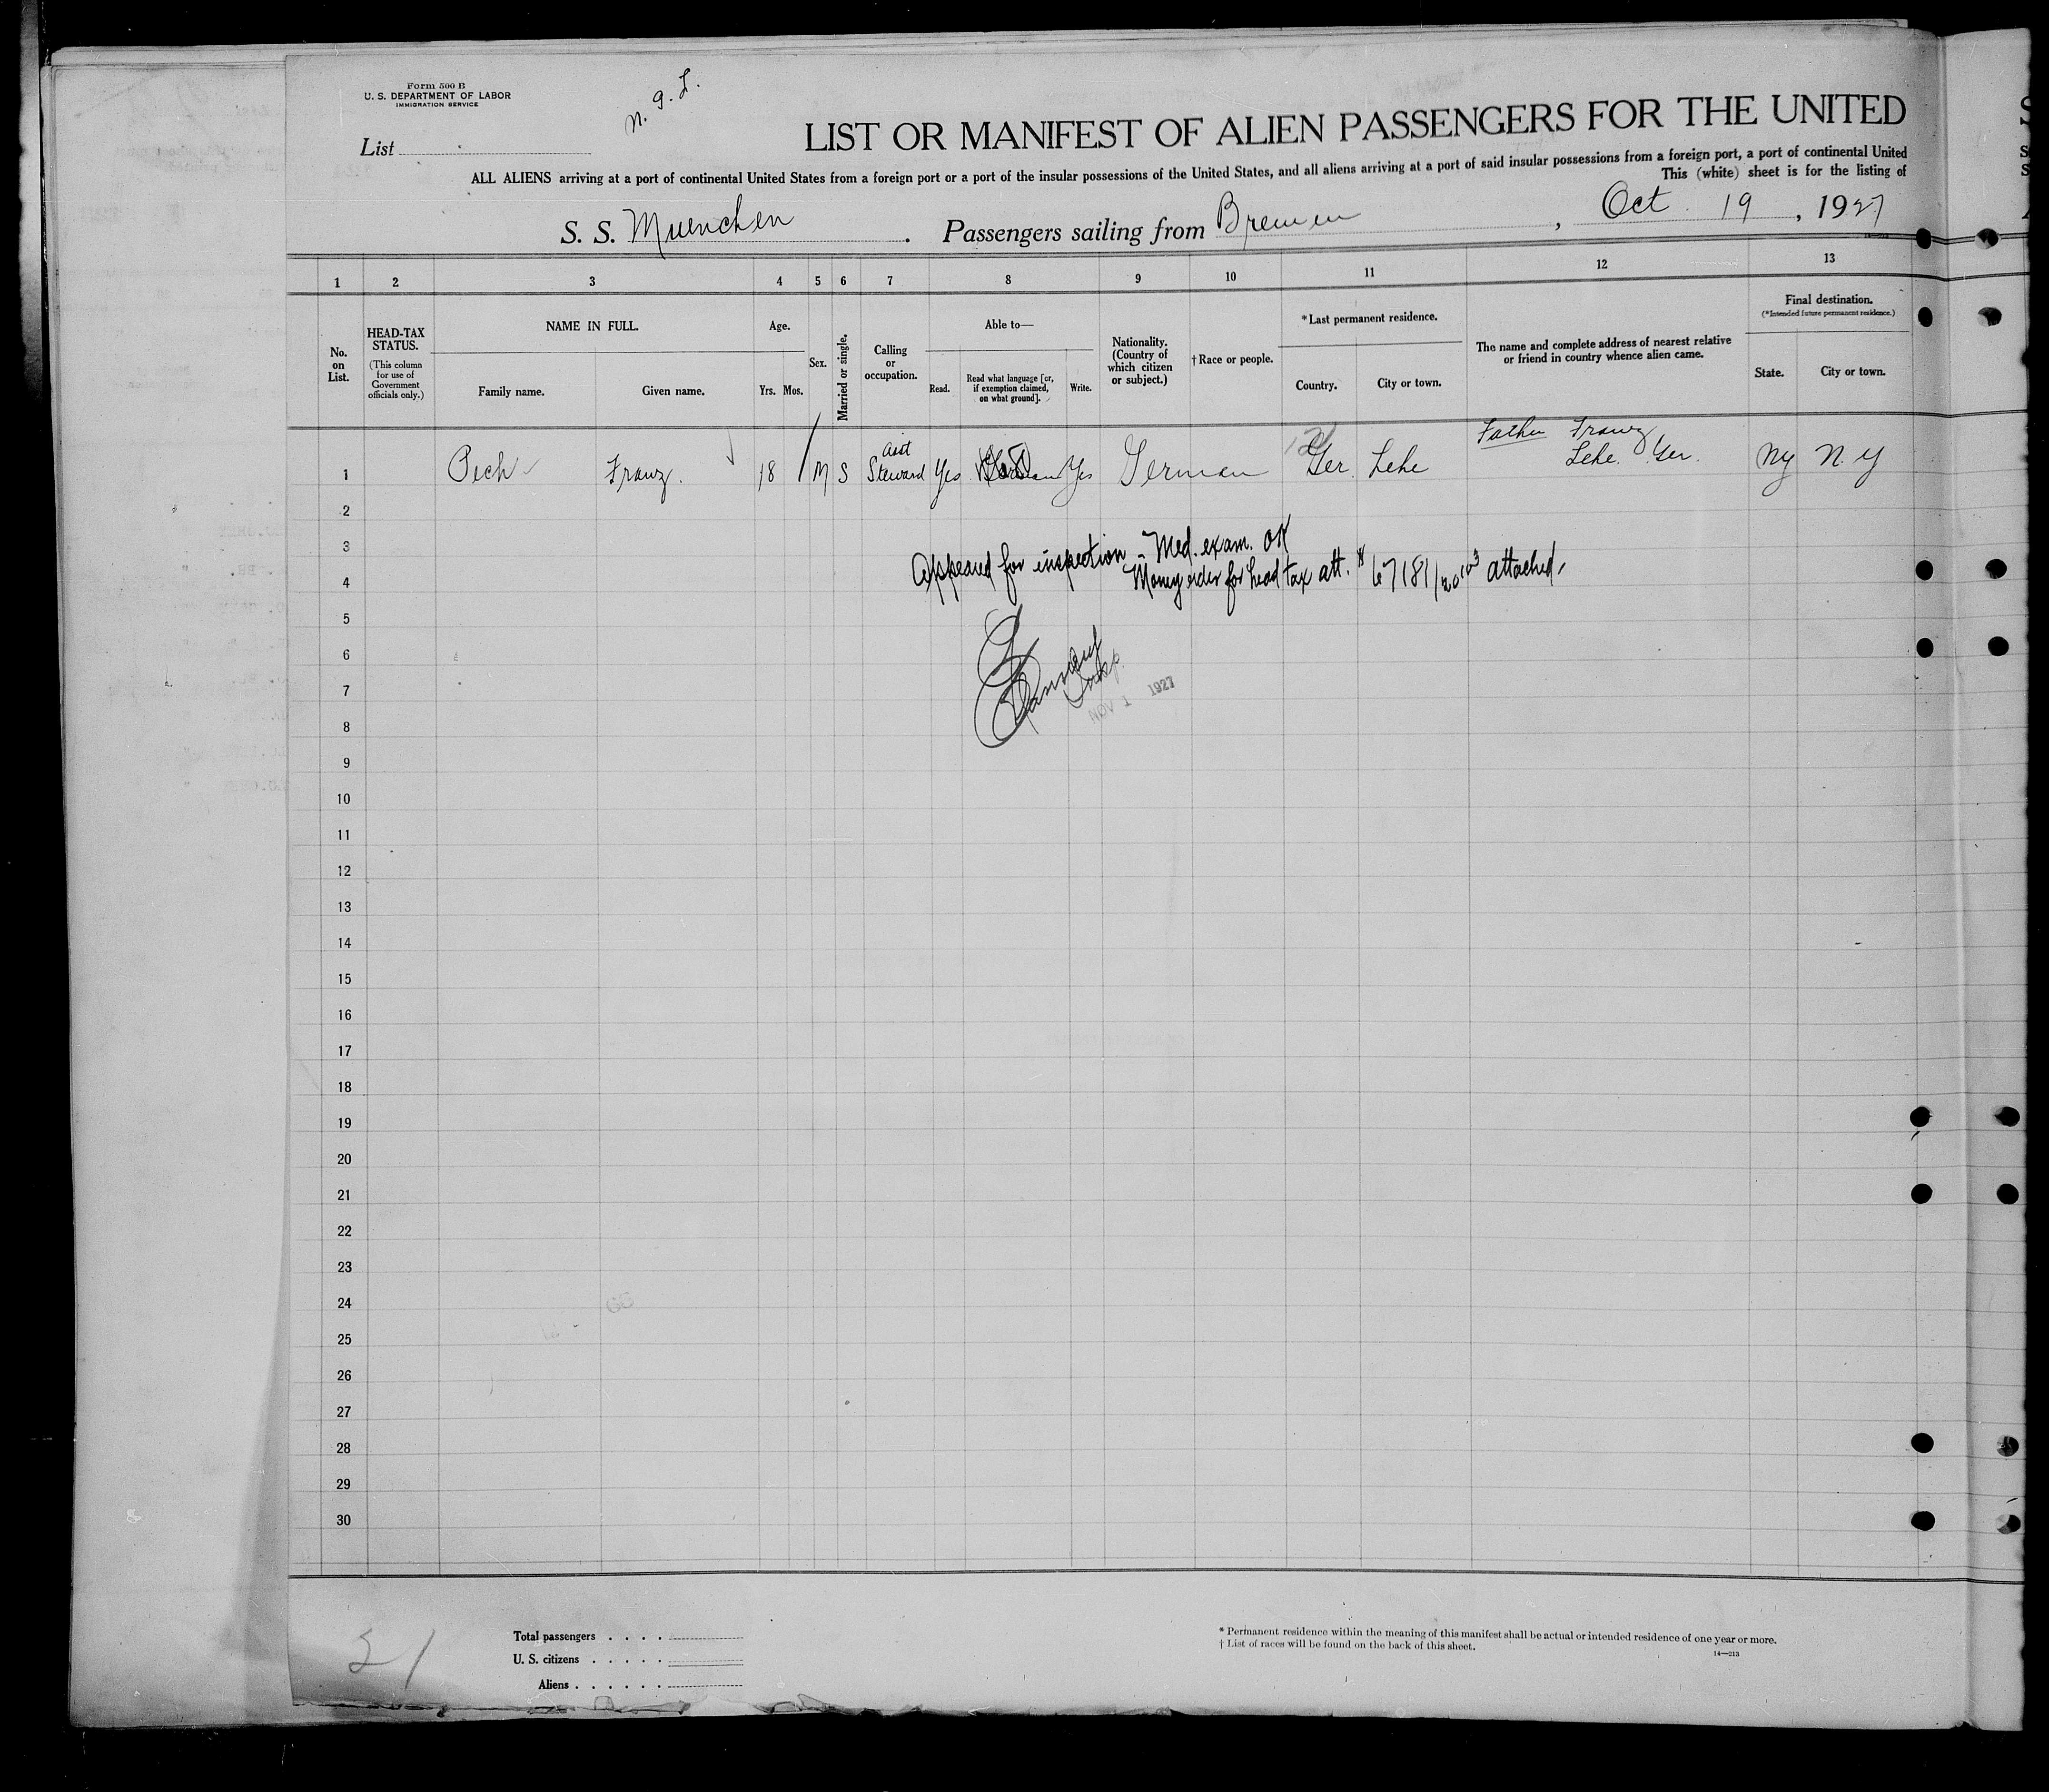 Form 500 B
U. S. DEPARTMENT OF LABOR
IMMIGRATION SERVICE
List
N. G. L.
LIST OR MANIFEST OF ALIEN PASSENGERS FOR THE UNITED
ALL ALIENS arriving at a port of continental United States from a foreign port or a port of the insular possessions of the United States, and all aliens arriving at a port of said insular possessions from a foreign port, a port of continental United
This (white) sheet is for the listing of
S. S. Muenchen. Passengers sailing from Bremen, Oct 19, 1927
1 2 3 4 5 6 7 8 9 10 11 12 13
No. on List.
HEAD-TAX STATUS.
(This column for use of Government officials only.)
NAME IN FULL.
Family name. Given name.
Age.
Yrs. Mos.
Sex.
Married or single.
Calling or occupation.
Able to—
Read. Read what language [or, if exemption claimed, on what ground]. Write.
Nationality. (Country of which citizen or subject.)
†Race or people.
*Last permanent residence.
Country. City or town.
The name and complete address of nearest relative or friend in country whence alien came.
Final destination.
(*Intended future permanent residence.)
State. City or town.
1 Pech Franz. 18 M S Asst Steward Yes German Yes German Ger. Lehe Father Franz Lehe. Ger. NY N. Y
2
3
Appeared for inspection - Med. exam. OK
4
Money order for head tax att. attached.
5
6
7
NOV 1 1927
8
9
10
11
12
13
14
15
16
17
18
19
20
21
22
23
24
25
26
27
28
29
30
Total passengers . . . .
U. S. citizens . . . . .
Aliens . . . . . .
* Permanent residence within the meaning of this manifest shall be actual or intended residence of one year or more.
† List of races will be found on the back of this sheet.
14—213